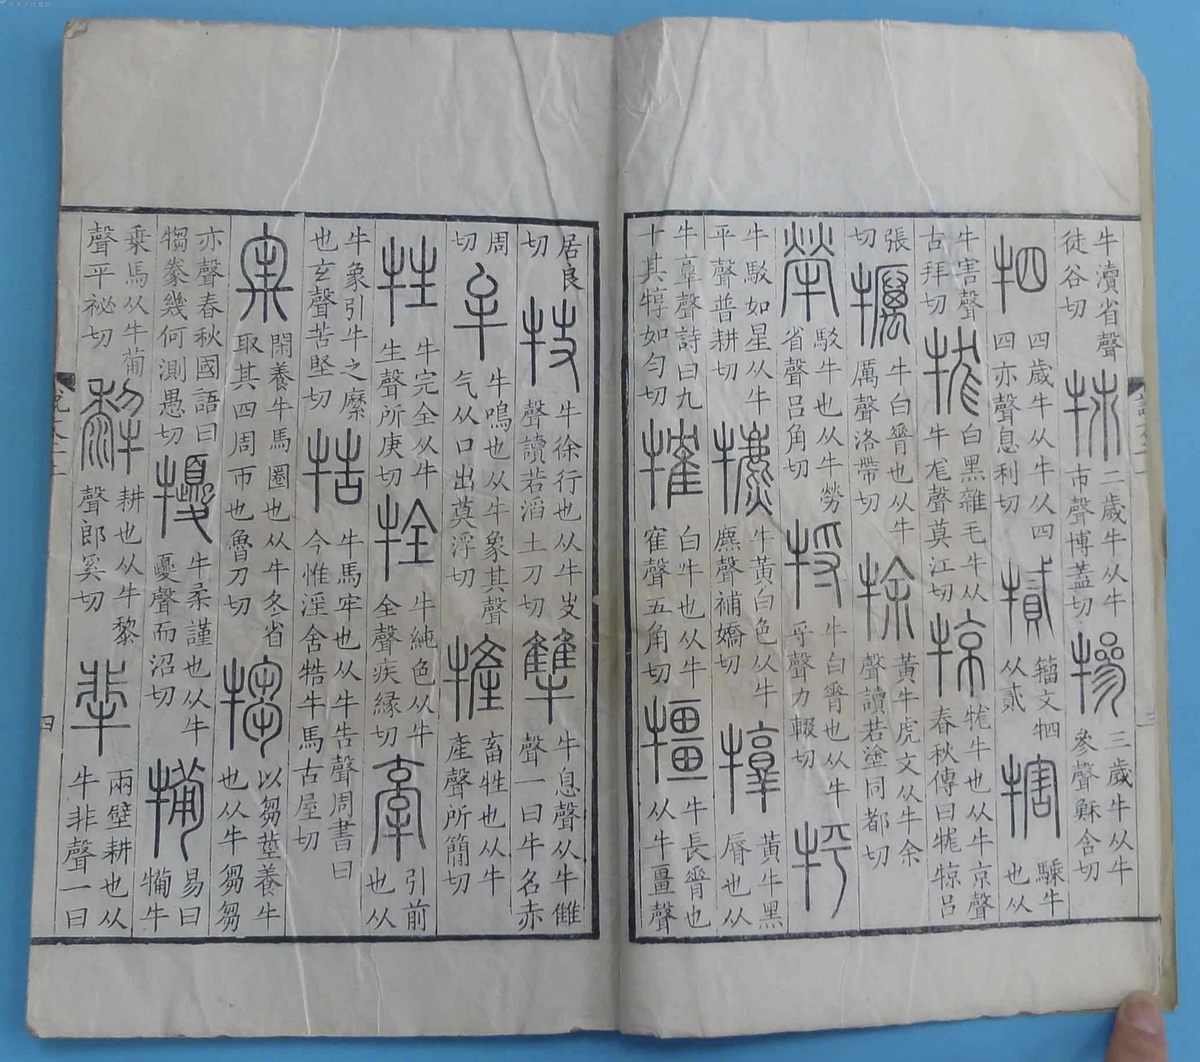 牛瀆省聲
徒谷切
㹃
二歲牛从牛
巿聲博蓋切
犙
三歲牛从牛
參聲穌含切
牭
四歲牛从牛从四
四亦聲息利切
籒文牭
从貳
犗
騬牛
也从
牛害聲
古拜切
牻
白黑雜毛牛从
牛尨聲莫江切
㹁
牻牛也从牛京聲
春秋傳曰牻㹁呂
張
切
犡
牛白脊也从牛
厲聲洛帶切
㹎
黃牛虎文从牛余
聲讀若塗同都切
犖
駁牛也从牛勞
省聲呂角切
㸹
牛白脊也从牛
寽聲力輟切
牛駁如星从牛
平聲普耕切
犥
牛黃白色从牛
麃聲補嬌切
犉
黃牛黑
脣也从
牛𦎧聲詩曰九
十其犉如勻切
㹊
白牛也从牛
隺聲五角切
㹔
牛長脊也
从牛畺聲
三
居良
切
牛徐行也从牛㚇
聲讀若滔土刀切
犨
牛息聲从牛雔
聲一曰牛名赤
周
切
牟
牛鳴也从牛象其聲
气从口出莫浮切
㹌
畜牲也从牛
產聲所簡切
牲
牛完全从牛
生聲所庚切
牷
牛純色从牛
全聲疾緣切
牽
引前
也从
牛象引牛之縻
也玄聲苦堅切
牿
牛馬牢也从牛告聲周書曰
今惟淫舍牿牛馬古屋切
牢
閑養牛馬圈也从牛冬省
取其四周帀也魯刀切
犓
以芻莝養牛
也从牛芻芻
亦聲春秋國語曰
犓豢幾何測愚切
㹛
牛柔謹也从牛
夒聲而沼切
犕
易曰
犕牛
乘馬从牛𤰇
聲平祕切
耕也从牛黎
聲郎奚切
兩壁耕也从
牛非聲一曰
四